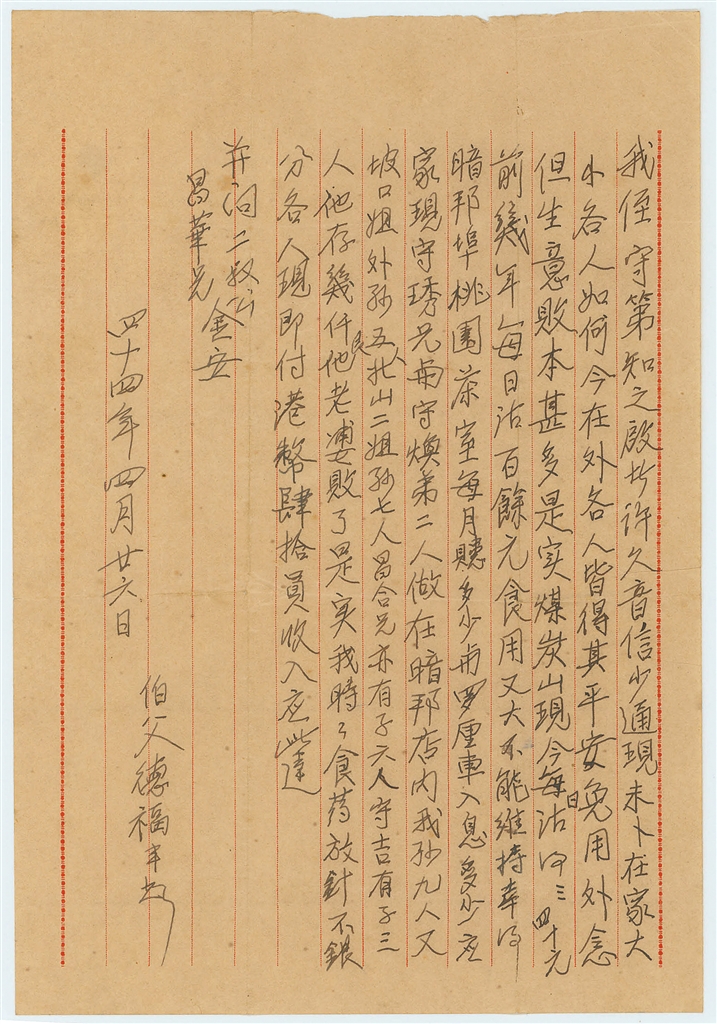 我侄守第知之啟者許久音信少通現未卜在家大
小各人如何今在外各人皆得其平安免用外念
但生意敗本甚多是实煤炭山現今每日沽得三四十元
前幾年每日沽百餘元食用又大不能維持幸得
暗邦埠桃園茶室每月賺多少兩罗厘車入息多少应
家現守琇兄兩守煥弟二人做在暗邦店内我孙九人又
坡口姐外孙五人民批山二姐孙七人昌合兄亦有子六人守吉有子三
人他存幾仟他老婆敗了是实我時々食药放針不銀
分各人現即付港幣肆拾員收入应此達
并问二叔公金安
昌華兄
四十四年四月廿六日
伯父德福手